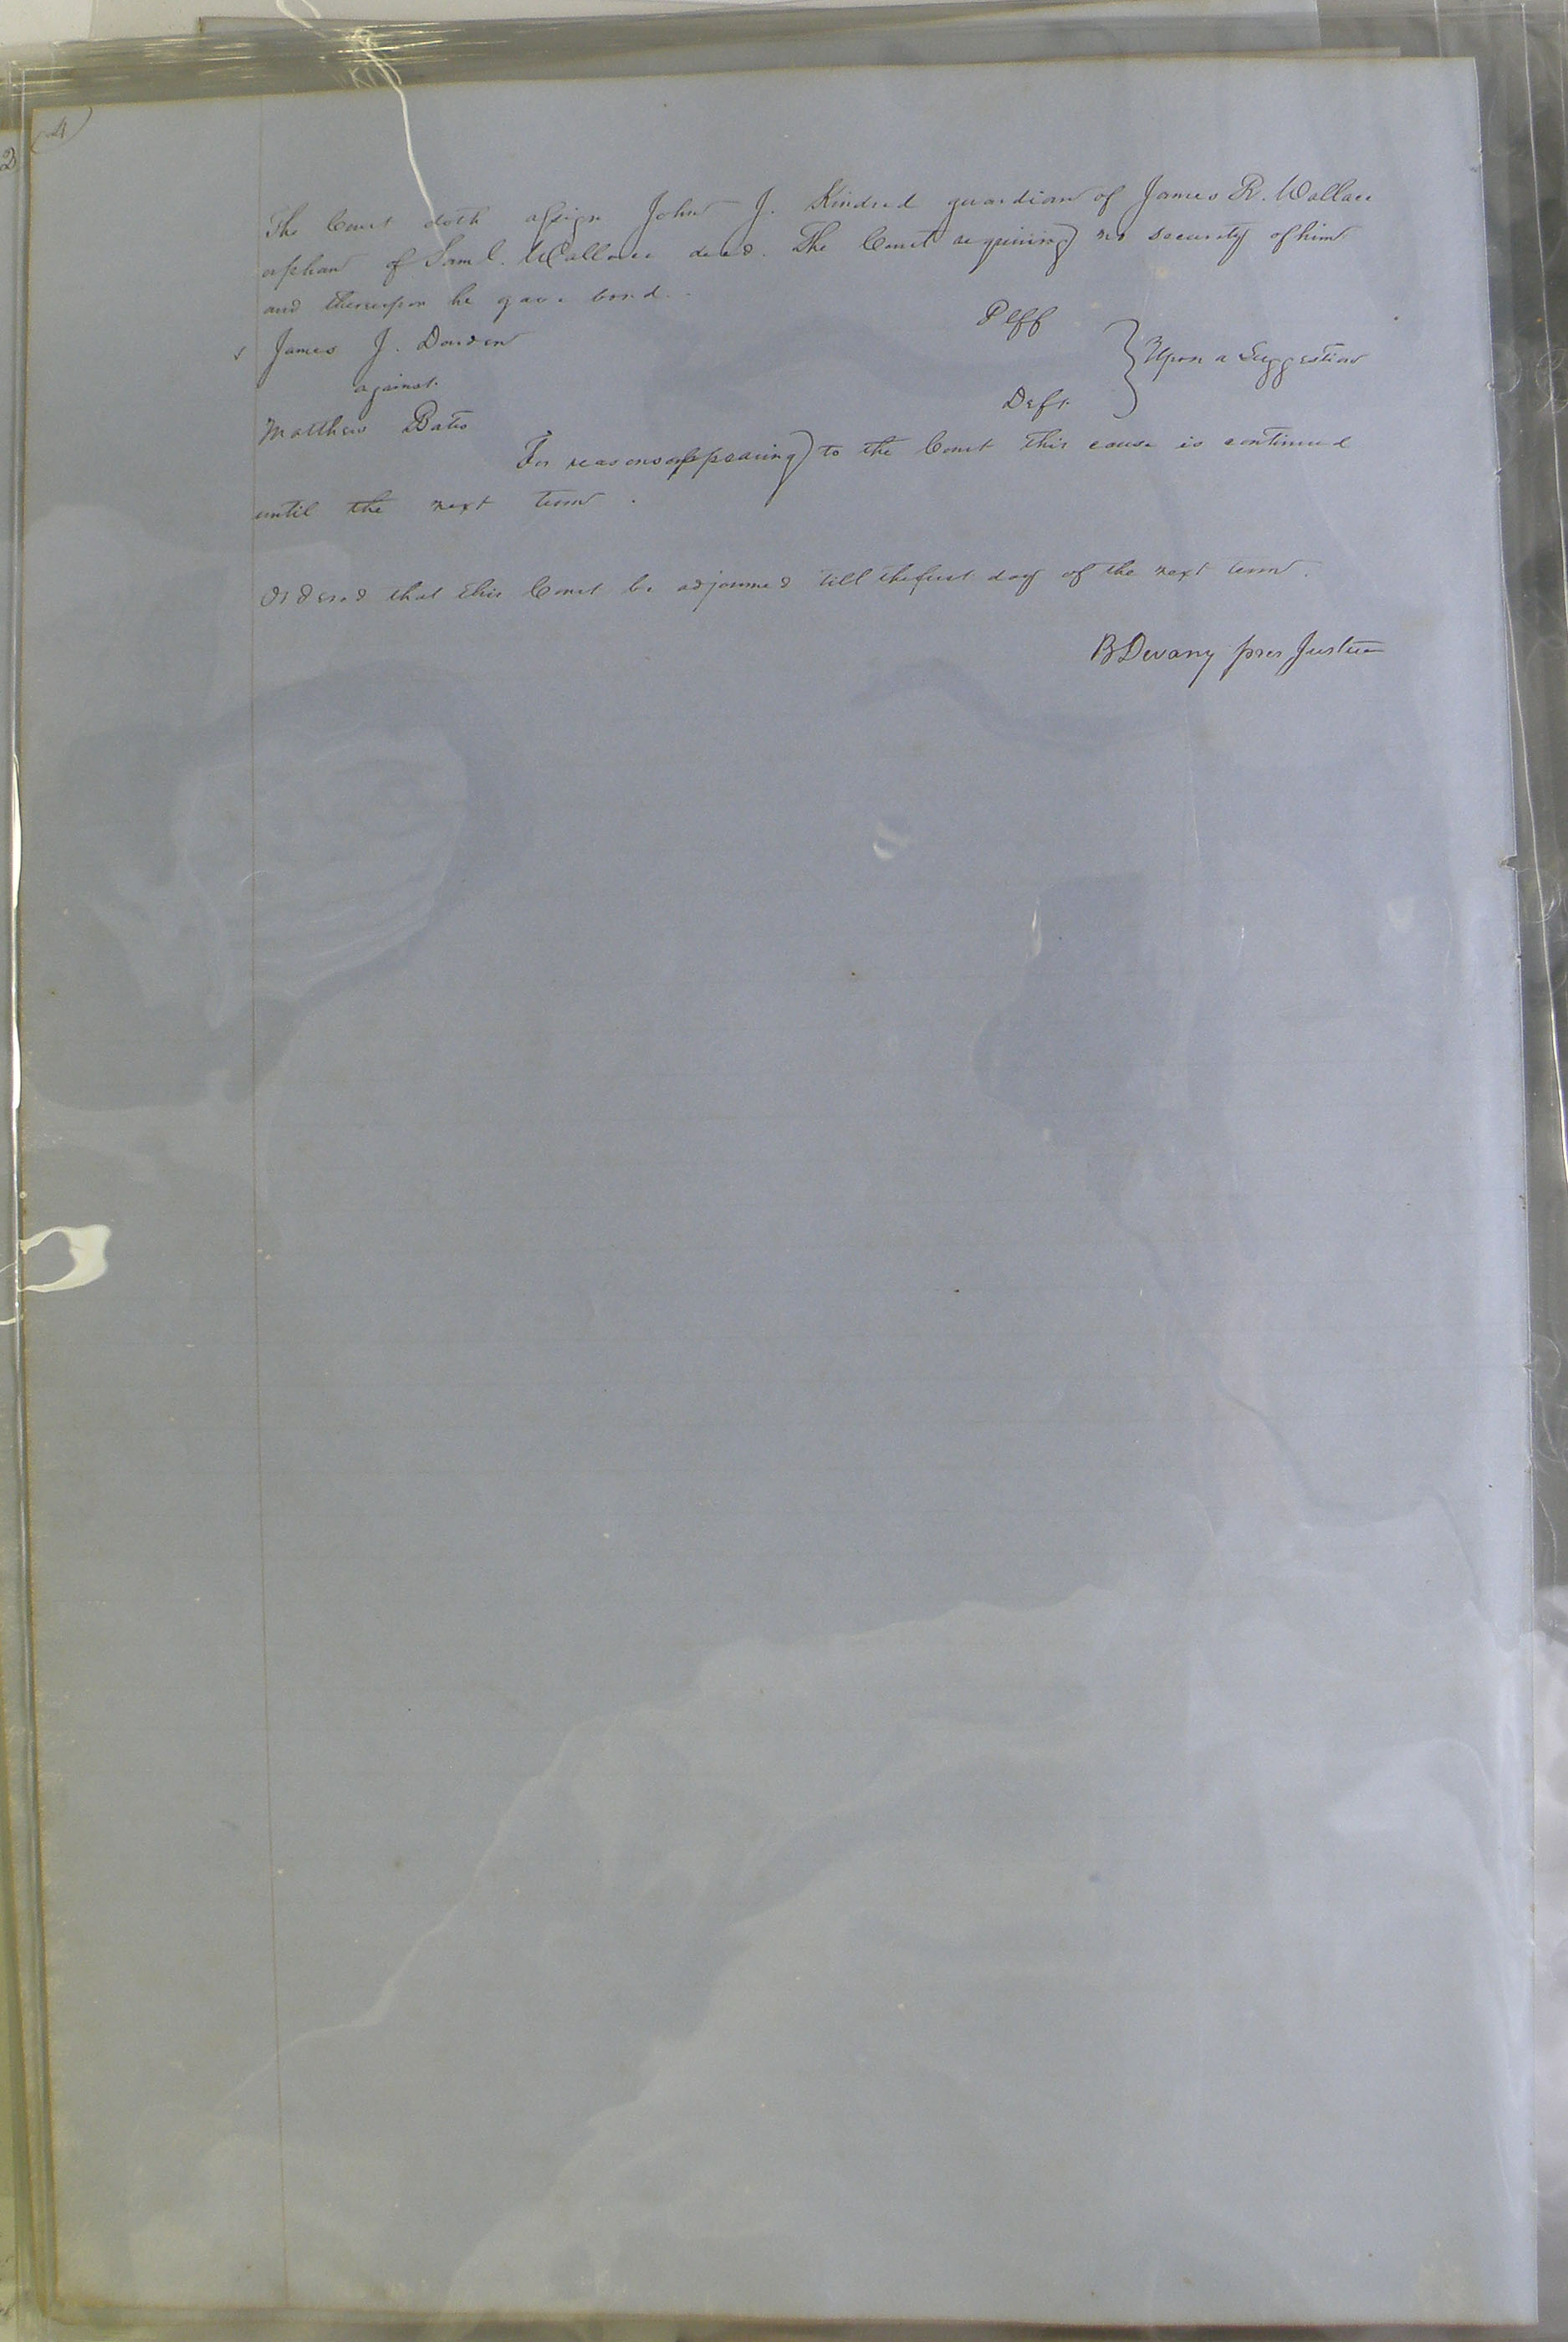 4
The Court doth assign John J. Kindred guardian of James R. Wallace
orphan of Saml. Wallace decd. The Court requiring no security of him
and thereupon he gave bond.
James J. Darden Plff
against Upon a Suggestion
Matthew Bates Deft.
For reasons appearing to the Court this cause is continued
until the next term.
Ordered that this Court be adjourned till the first day of the next term.
B Devany pres Justice